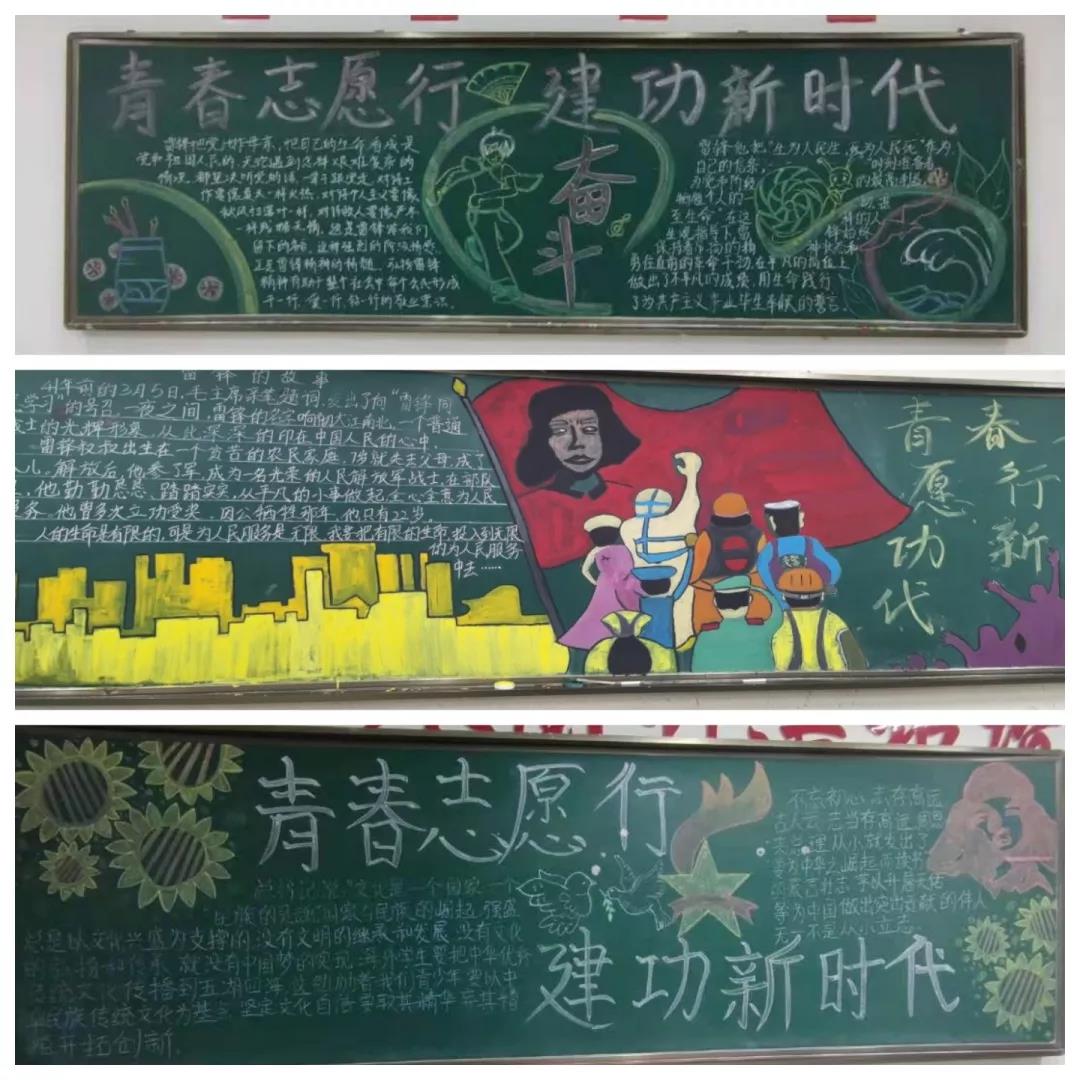 青春志愿行 建功新时代
奋斗
雷锋把党比作母亲，把自己的生命看成是
党和祖国人民的，无论遇到怎样艰难复杂的
情况，都坚决听党的话，一辈子跟党走，对待工
作要像夏天一样火热，对待个人主义要像
秋风扫落叶一样，对待敌人要像严冬
一样残酷无情，这是雷锋给我们
留下的名言，这种强烈的阶级情感
正是雷锋精神的精髓，弘扬雷锋
精神有助于整个社会中每个公民形成
干一行、爱一行、钻一行的敬业意识。
雷锋他把"生为人民生，死为人民死"作为
自己的信条，
时刻准备着
为党和阶级
的最高利益
牺牲个人的一
至生命"在这
勇往直前的革命干劲，在平凡的岗位上
做出了不平凡的成绩，用生命践行
了为共产主义事业毕生奉献的誓言。
雷锋的故事
41年前的3月5日，毛主席亲笔题词，发出了向"雷锋同
学习"的号召，一夜之间，雷锋的名字响彻大江南北，一个普通
战士的光辉形象，从此深深的印在中国人民的心中
雷锋叔叔出生在一个贫苦的农民家庭，7岁就失去父母，成了
儿，解放后，他参了军，成为一名光荣的人民解放军战士，在部队
，他勤勤恳恳、踏踏实实，从平凡的小事做起，全心全意为人民
务。他曾多次立功受奖，因公牺牲那年，他只有22岁。
人的生命是有限的，可是为人民服务是无限，我要把有限的生命，投入到无限
的为人民服务
中去……
青春
愿行
功新
代
青春志愿行
建功新时代
不忘初心，志存高远
古人云，志当存高远，周恩
来总理从小就发出了
要为中华之崛起而读书
等为中国做出突出贡献的伟人
无一不是从小立志
总书记说，"文化是一个国家一个
民族的灵魂"国家与民族的崛起强盛
总是以文化兴盛为支撑的，没有文明的继承和发展，没有文化
的弘扬和传承，就没有中国梦的实现，海外学生要把中华优秀
传统文化传播到五湖四海，这勉励着我们青少年要以中
华民族传统文化为基，坚定文化自信，要取其精华，弃其糟
粕，开拓创新.